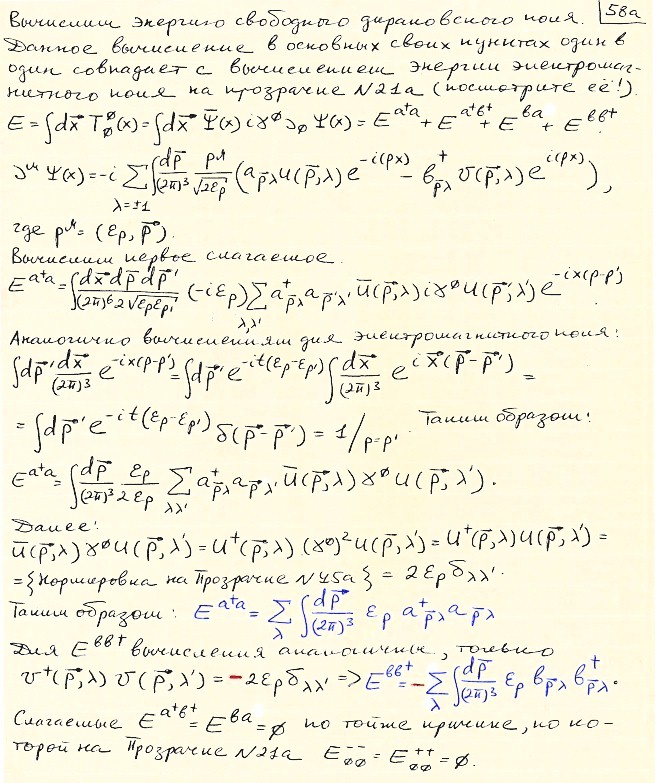 Вычислим энергию свободного дираковского поля. 58а
Данное вычисление в основных своих пунктах один в
один совпадает с вычислением энергии электромаг-
нитного поля на прозрачке N21а (посмотрите её!).
E = ∫dx⃗ T₀⁰(x) = ∫dx⃗ Ψ̄(x) iγ⁰∂₀ Ψ(x) = E^{a⁺a} + E^{a⁺b⁺} + E^{ba} + E^{bb⁺}.
∂^μ Ψ(x) = -i ∑_{λ=±1} ∫ dp⃗/(2π)³ p^μ/√(2ε_p) (a_{p⃗λ} u(p⃗,λ) e^{-i(px)} - b⁺_{p⃗λ} v(p⃗,λ) e^{i(px)}),
где p^μ = (ε_p, p⃗).
Вычислим первое слагаемое.
E^{a⁺a} = ∫ dx⃗ dp⃗ dp⃗'/((2π)⁶ 2√(ε_p ε_p')) (-iε_p) ∑_{λ,λ'} a⁺_{p⃗λ} a_{p⃗'λ'} ū(p⃗,λ) iγ⁰ u(p⃗',λ') e^{-ix(p-p')}.
Аналогично вычислениям для электромагнитного поля:
∫dp⃗' dx⃗/(2π)³ e^{-ix(p-p')} = ∫dp⃗' e^{-it(ε_p-ε_p')} ∫ dx⃗/(2π)³ e^{i x⃗(p⃗-p⃗')} =
= ∫dp⃗' e^{-it(ε_p-ε_p')} δ(p⃗-p⃗') = 1/_{p=p'} Таким образом:
E^{a⁺a} = ∫ dp⃗/(2π)³ ε_p/(2ε_p) ∑_{λλ'} a⁺_{p⃗λ} a_{p⃗λ'} ū(p⃗,λ) γ⁰ u(p⃗,λ').
Далее:
ū(p⃗,λ) γ⁰ u(p⃗,λ') = u⁺(p⃗,λ) (γ⁰)² u(p⃗,λ') = u⁺(p⃗,λ) u(p⃗,λ') =
= {Нормировка на Прозрачке N45а} = 2ε_p δ_{λλ'}.
Таким образом: E^{a⁺a} = ∑_λ ∫ dp⃗/(2π)³ ε_p a⁺_{p⃗λ} a_{p⃗λ}
Для E^{bb⁺} вычисления аналогичны, только
v⁺(p⃗,λ) v(p⃗,λ') = -2ε_p δ_{λλ'} => E^{bb⁺} = -∑_λ ∫ dp⃗/(2π)³ ε_p b_{p⃗λ} b⁺_{p⃗λ}.
Слагаемые E^{a⁺b⁺} = E^{ba} = 0 по той же причине, по ко-
торой на Прозрачке N21а E₀₀^{--} = E₀₀^{++} = 0.